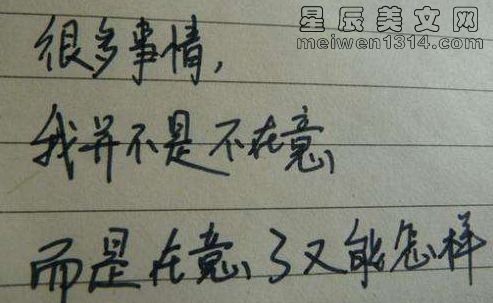 星辰美文网
meiwen1314.com
很多事情，
我并不是不在意，
而是在意了又能怎样